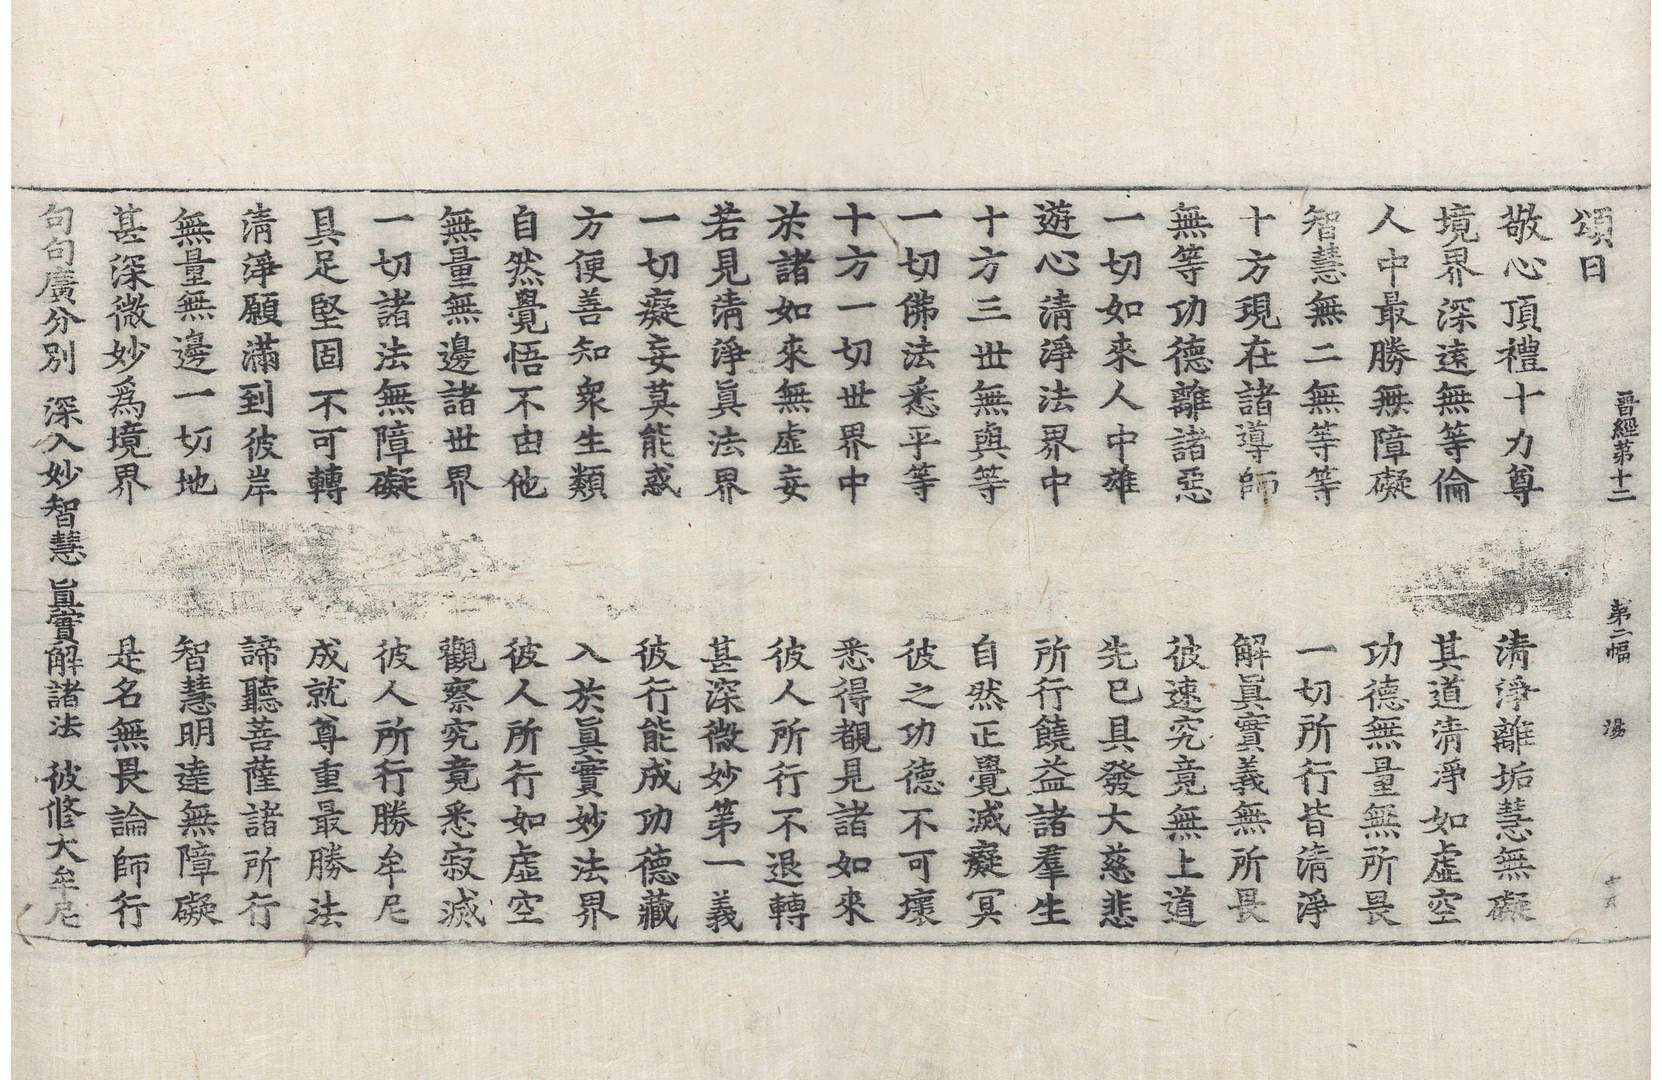 晋經第十二 第二幅 湯
頌曰
敬心頂禮十力尊 清淨離垢慧無礙
境界深遠無等倫 其道清淨如虛空
人中最勝無障礙 功德無量無所畏
智慧無二無等等 一切所行皆清淨
十方現在諸導師 解眞實義無所畏
無等功德離諸惡 彼速究竟無上道
一切如來人中雄 先已具發大慈悲
遊心清淨法界中 所行饒益諸羣生
十方三世無與等 自然正覺滅癡冥
一切佛法悉平等 彼之功德不可壞
十方一切世界中 悉得覩見諸如來
於諸如來無虛妄 彼人所行不退轉
若見清淨眞法界 甚深微妙第一義
一切癡妄莫能惑 彼行能成功德藏
方便善知衆生類 入於眞實妙法界
自然覺悟不由他 彼人所行如虛空
無量無邊諸世界 觀察究竟悉寂滅
一切諸法無障礙 彼人所行勝牟尼
具足堅固不可轉 成就尊重最勝法
清淨願滿到彼岸 諦聽菩薩諸所行
無量無邊一切地 智慧明達無障礙
甚深微妙爲境界 是名無畏論師行
句句廣分別 深入妙智慧 眞實解諸法 彼修大牟尼